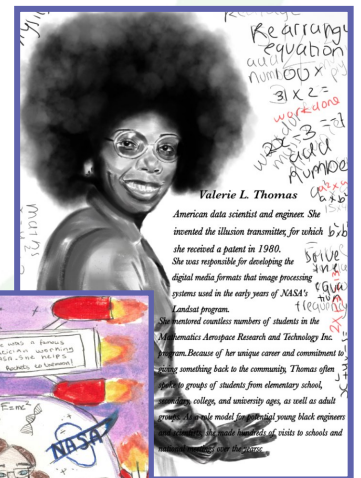 Rearrange
equation
add
number
100 x
31 x 2 =
work done
add
number
Valerie L. Thomas
American data scientist and engineer. She
invented the illusion transmitter, for which
she received a patent in 1980.
She was responsible for developing the
digital media formats that image processing
systems used in the early years of NASA's
Landsat program.
She mentored countless numbers of students in the
Mathematics Aerospace Research and Technology Inc.
program.Because of her unique career and commitment to
giving something back to the community, Thomas often
spoke to groups of students from elementary school,
secondary, college, and university ages, as well as adult
groups. As a role model for potential young black engineers
and scientists, she made hundreds of visits to schools and
national meetings over the years.
Solve
the
equa
frequency
was a famous
working
helps
Rockets to
E=mc²
NASA